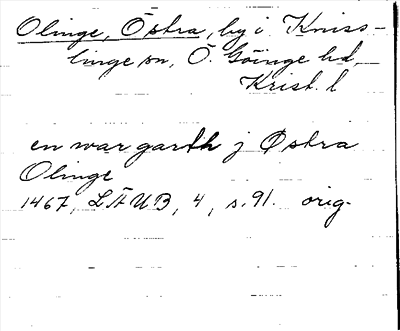 Olinge, Östra, by i Kniss-
linge sn, Ö. Göinge hd,
Krist. l
en war garth j Østra
Olinge
1467, LÄUB, 4, s. 91. orig.